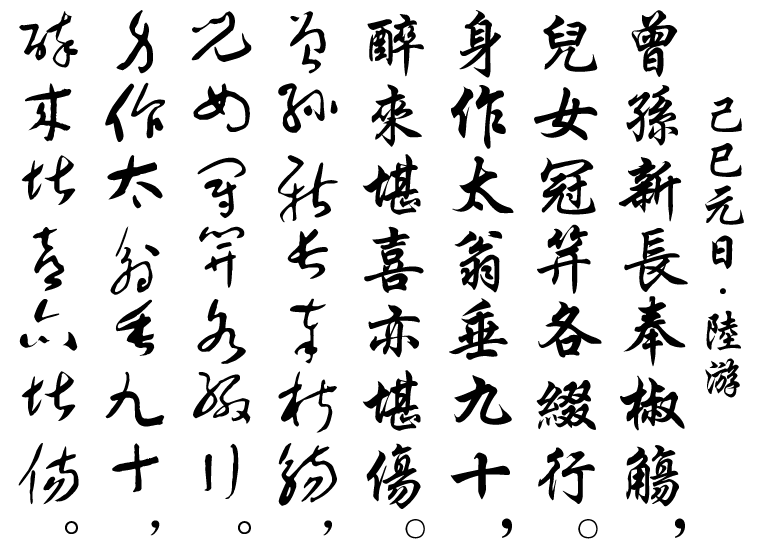 己巳元日·陸游
曾孫新長奉椒觴，
兒女冠笄各綴行。
身作太翁垂九十，
醉來堪喜亦堪傷。
曾孫新長奉椒觴，
兒女冠笄各綴行。
身作太翁垂九十，
醉來堪喜亦堪傷。